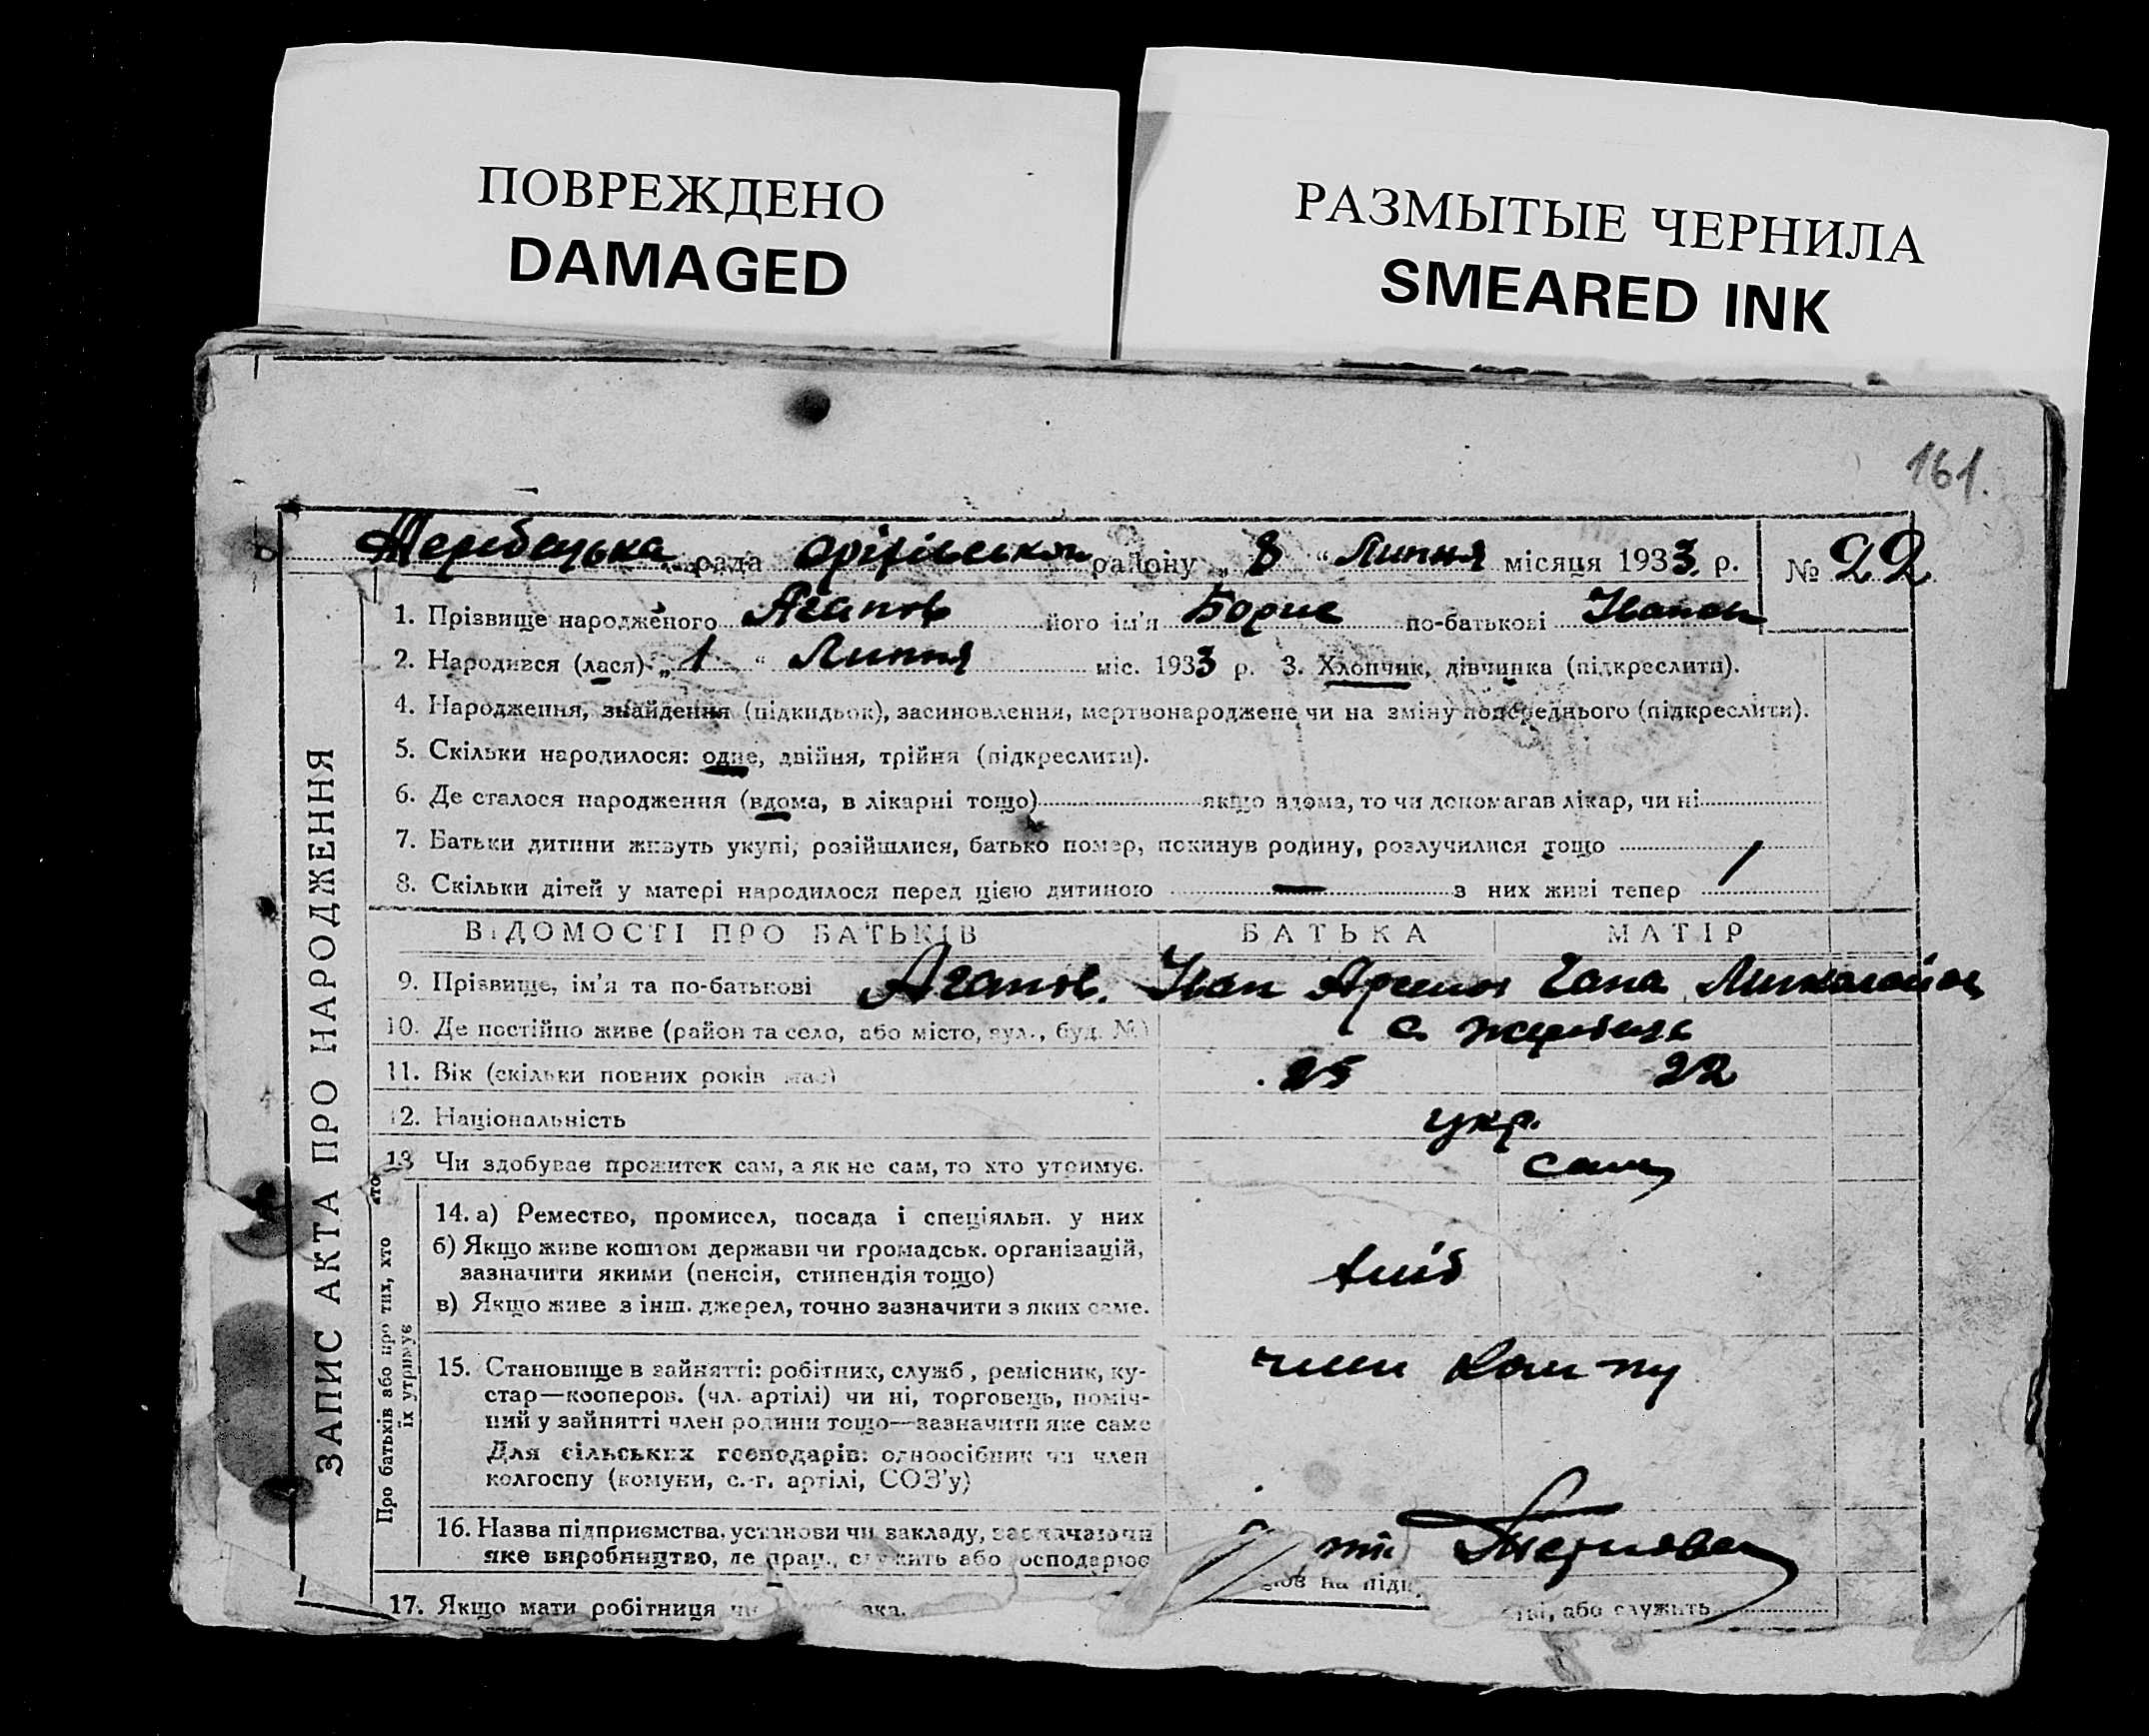 ПОВРЕЖДЕНО
DAMAGED
РАЗМЫТЫЕ ЧЕРНИЛА
SMEARED INK
161.
Жеребецька рада оріхівськ району „ 8 “ Липня місяця 1933. р. № 22
1. Прізвище народженого Агапов його ім'я Борис по-батькові Іванов
2. Народився (лася) „ 1 “ Липня міс. 1933 р. 3. Хлопчик, дівчинка (підкреслити).
4. Народження, знайдення (підкидьок), засиновлення, мертвонароджене чи на зміну попереднього (підкреслити).
5. Скільки народилося: одне, двійня, трійня (підкреслити).
6. Де сталося народження (вдома, в лікарні тощо) якщо вдома, то чи допомагав лікар, чи ні
7. Батьки дитини живуть укупі, розійшлися, батько помер, покинув родину, розлучилися тощо
8. Скільки дітей у матері народилося перед цією дитиною — з них живі тепер /
ЗАПИС АКТА ПРО НАРОДЖЕННЯ
ВІДОМОСТІ ПРО БАТЬКІВ БАТЬКА МАТІР
9. Прізвище, ім'я та по-батькові Агапов. Іван Миколайов
10. Де постійно живе (район та село, або місто, вул., буд. №) с
11. Вік (скільки повних років має) 25 22
12. Національність укр.
13 Чи здобуває прожиток сам, а як не сам, то хто утримує. сам
Про батьків або про тих, хто
їх утримує
14. а) Ремество, промисел, посада і спеціяльн. у них
б) Якщо живе коштом держави чи громадськ. організацій,
зазначити якими (пенсія, стипендія тощо)
в) Якщо живе з інш. джерел, точно зазначити з яких саме.
15. Становище в зайнятті: робітник, служб, ремісник, ку-
стар—кооперов. (чл. артілі) чи ні, торговець, поміч-
ний у зайнятті член родини тощо—зазначити яке саме
Для сільських господарів: одноосібник чи член
колгоспу (комуни, с.-г. артілі, СОЗ'у)
16. Назва підприємства, установи чи закладу, зазначаючи
яке виробництво, де прац., служить або господарює
17. Якщо мати робітниця на підп , або служить